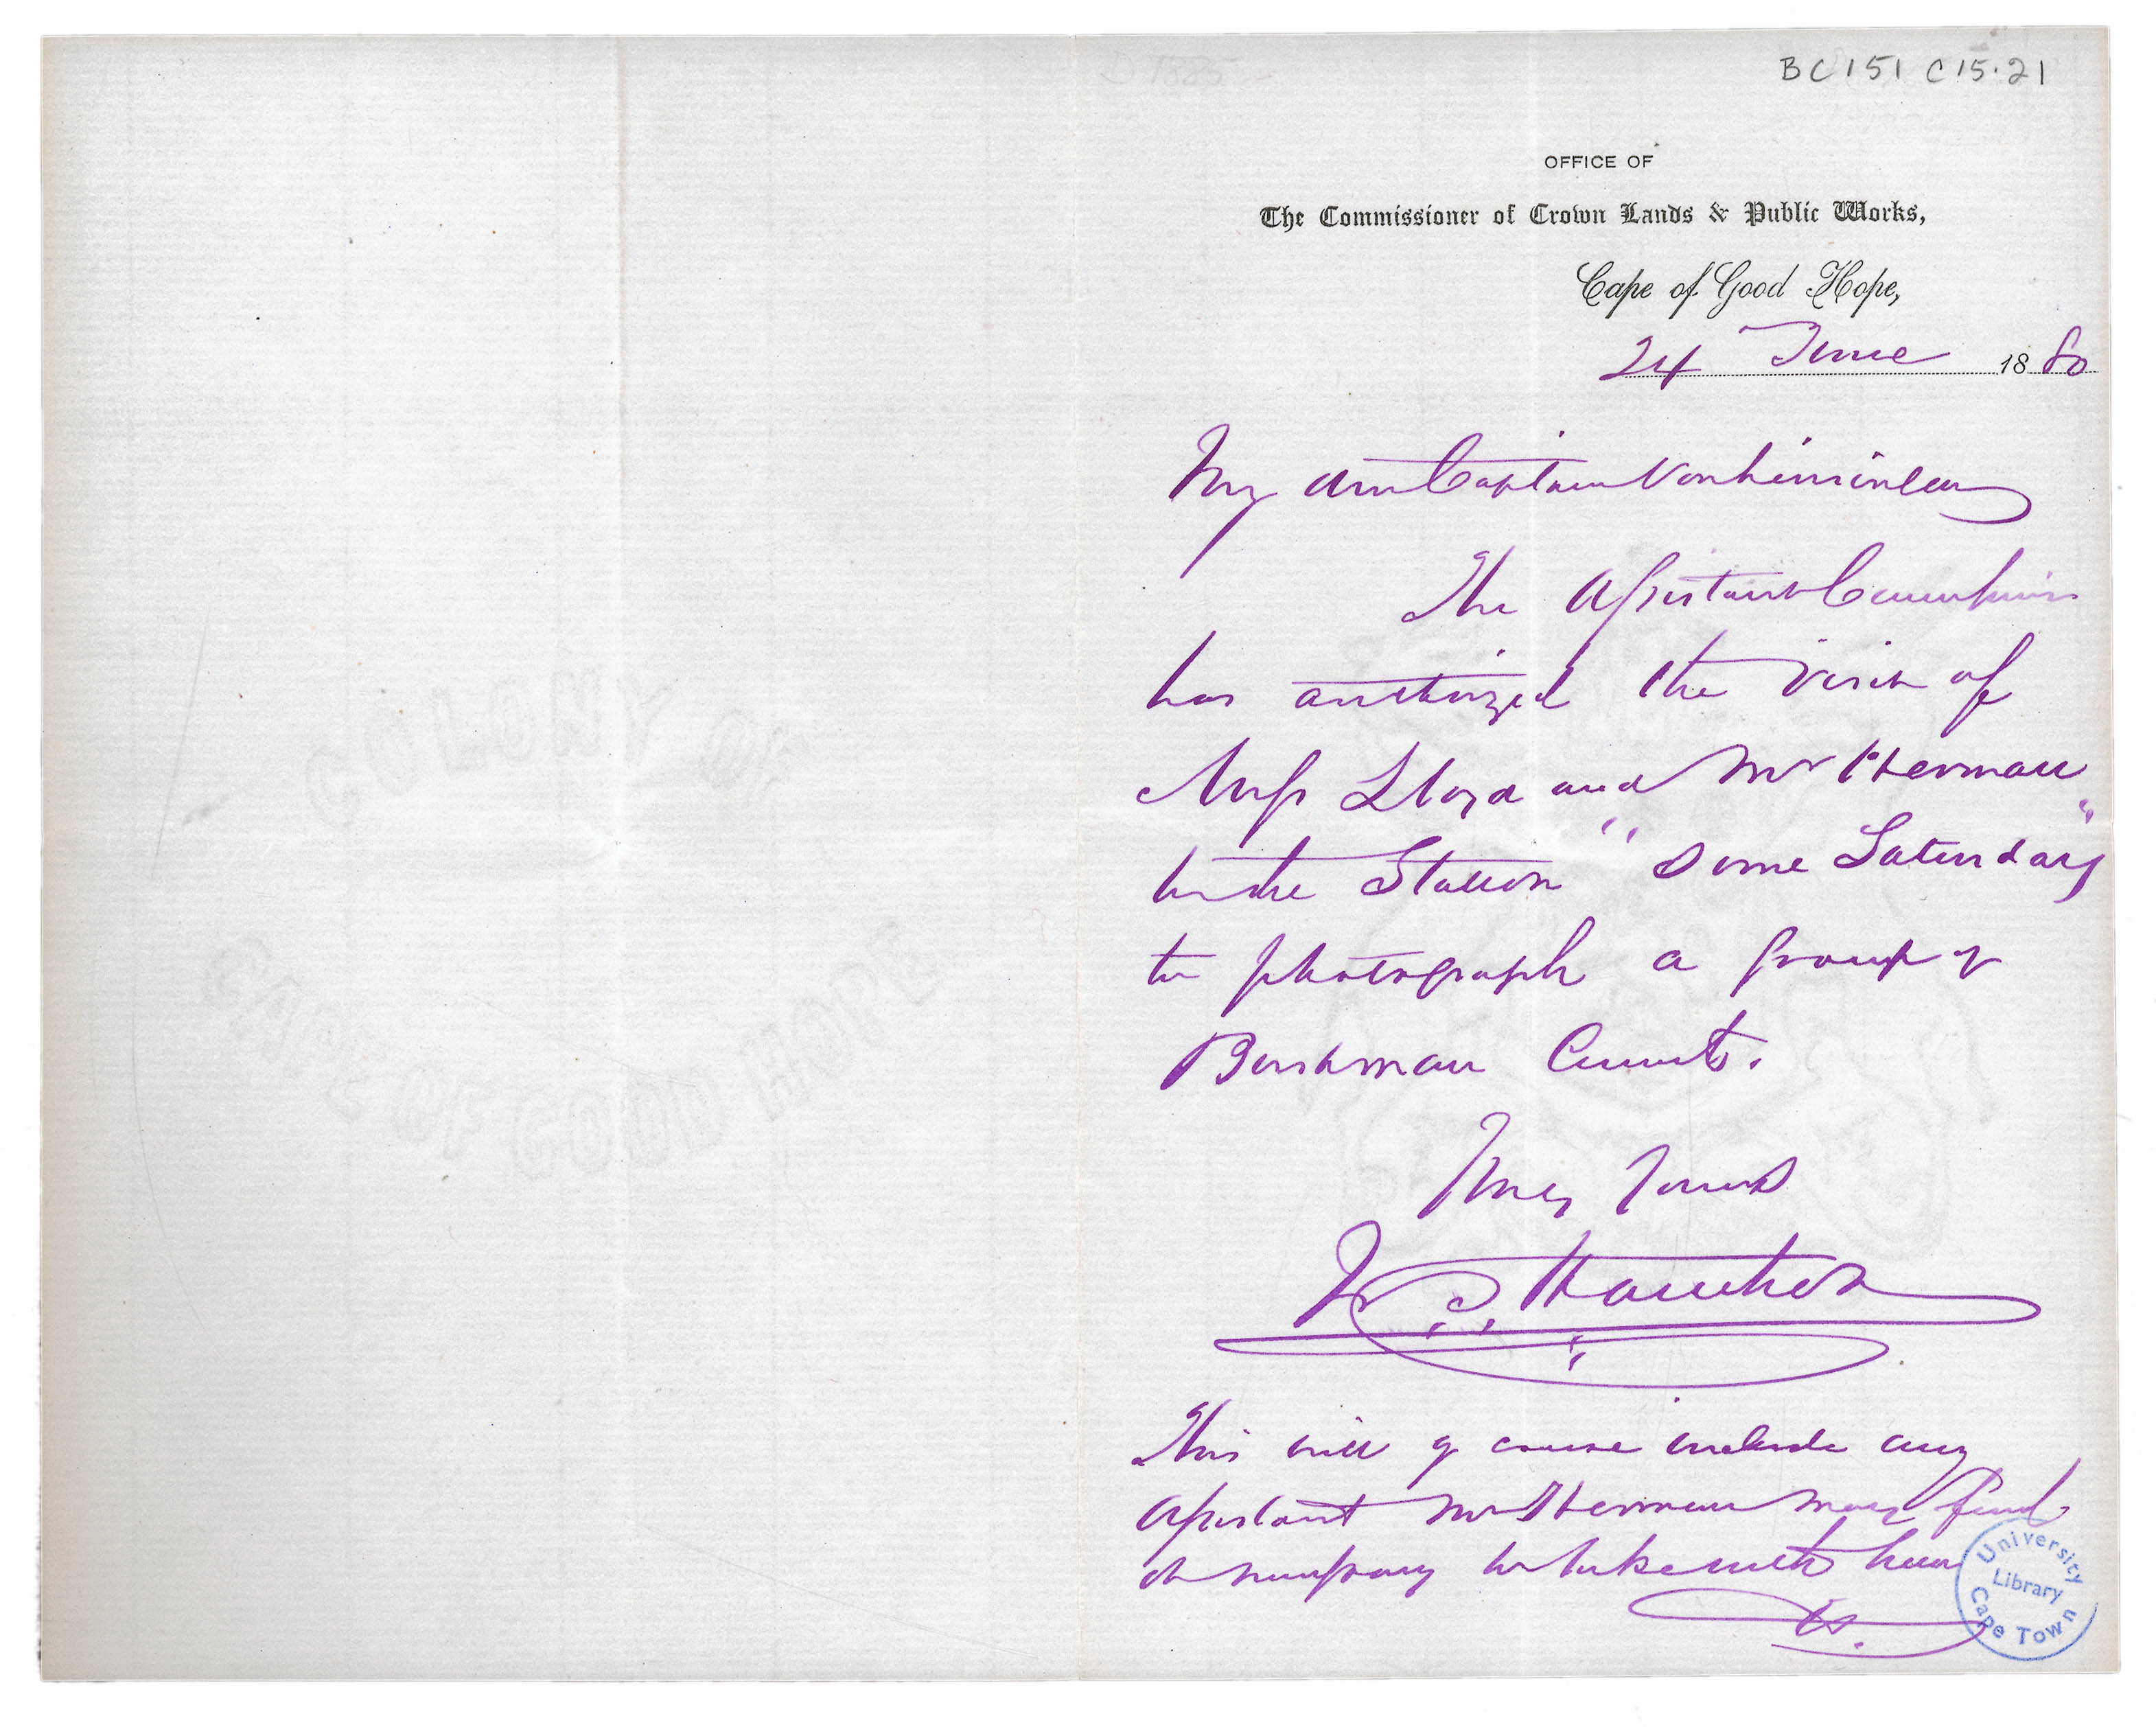 BC151 C15.21
OFFICE OF
The Commissioner of Crown Lands & Public Works,
Cape of Good Hope,
24 June 1880
My dear Captain
The Assistant Commissioner
has authorized the visit of
Miss Lloyd and Mr Herman
to the Station "some Saturday"
to photograph a group of
Bushman Convicts.
Yours
This will of course include any
Assistant Mr Herman may find
it necessary to take with him
H.
University
Library
Cape Town
COLONY OF
CAPE OF GOOD HOPE